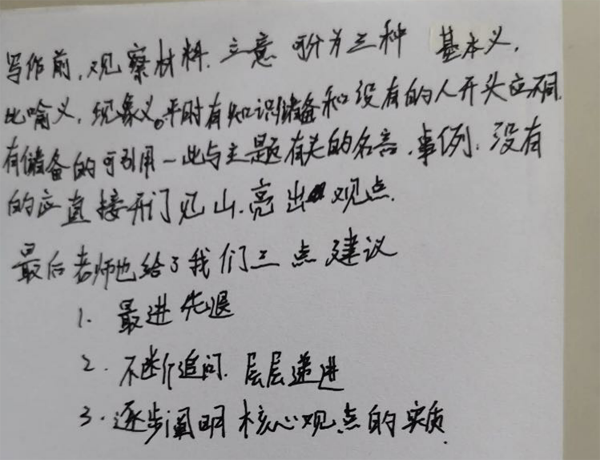 写作前,观察材料.立意 可分为三种 基本义,
比喻义,现象义。平时有知识储备和没有的人开头应不同.
有储备的可引用一些与主题有关的名言.事例.没有
的应直接开门见山.亮出观点.
最后老师也给了我们三点建议
1. 最进先退
2. 不断追问.层层递进
3. 逐步阐明核心观点的实质.